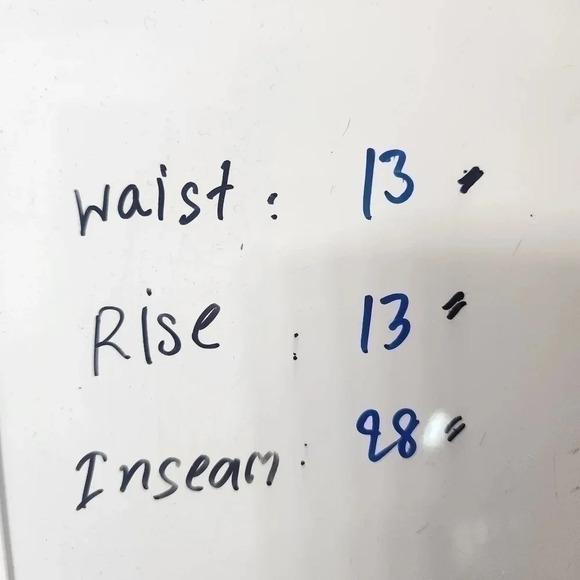 Waist : 13 "
Rise : 13 "
Inseam : 28 "